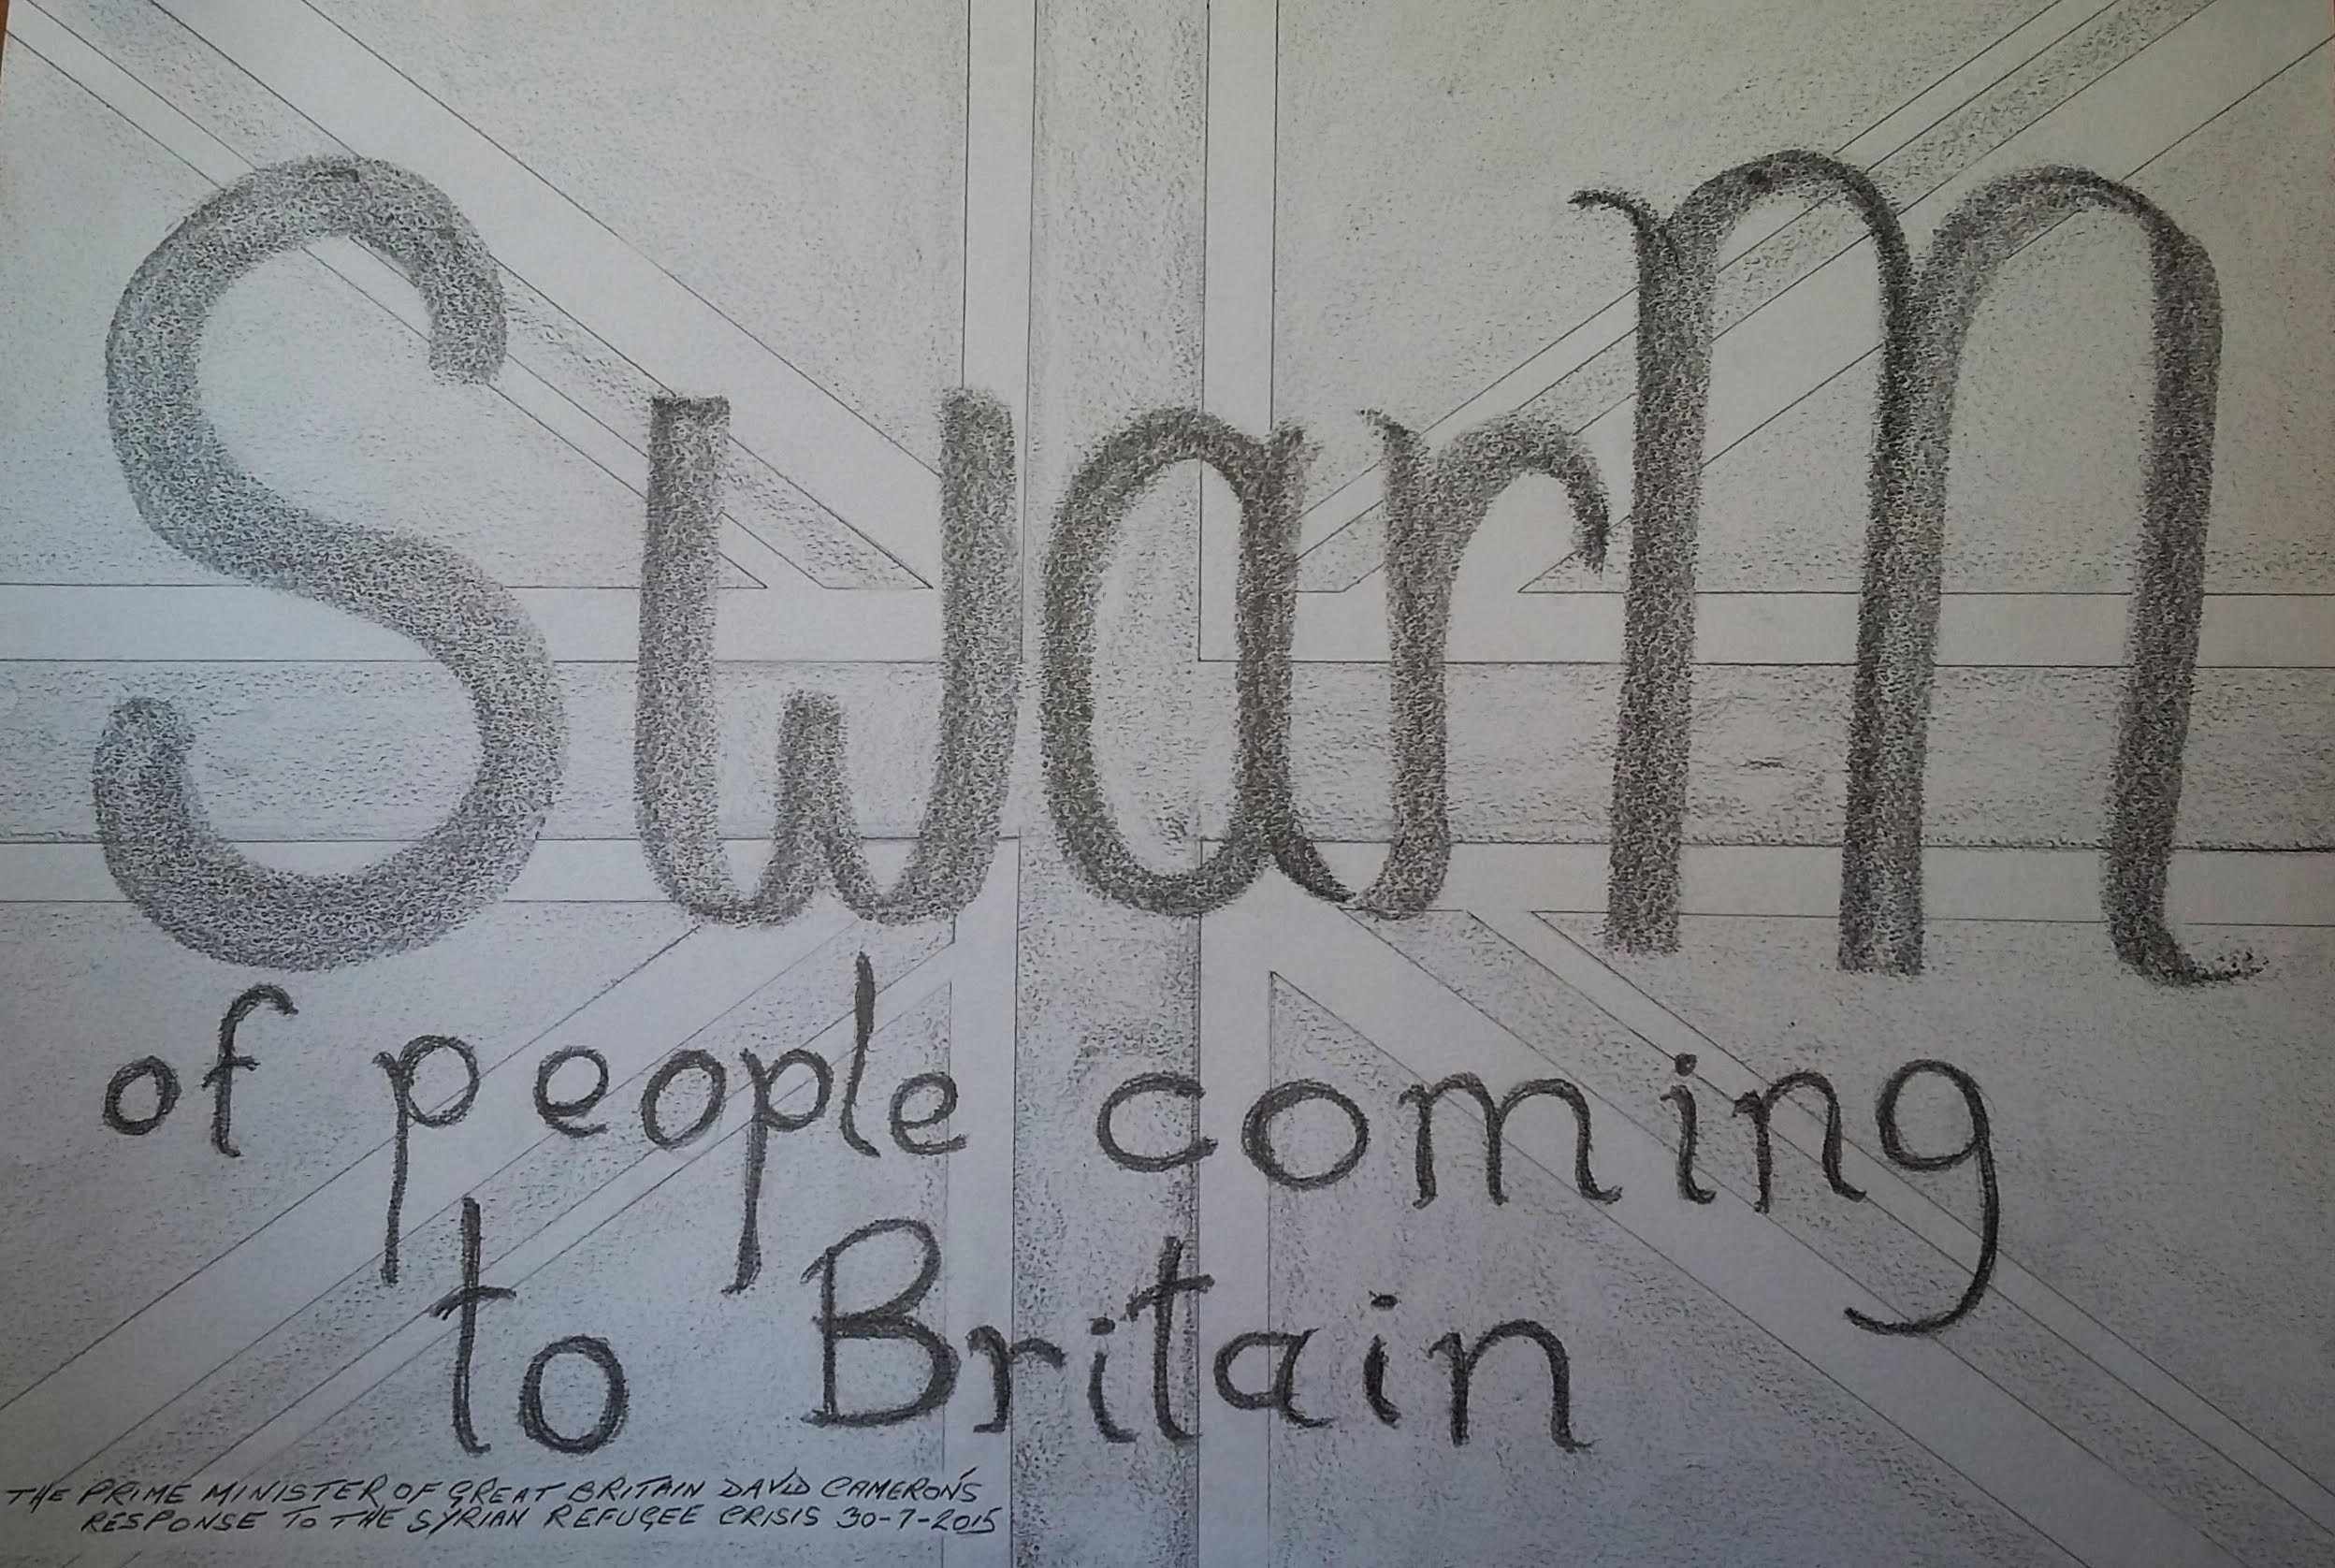 SwarM
of people coming
to Britain
THE PRIME MINISTER OF GREAT BRITAIN DAVID CAMERON'S
RESPONSE TO THE SYRIAN REFUGEE CRISIS 30-7-2015